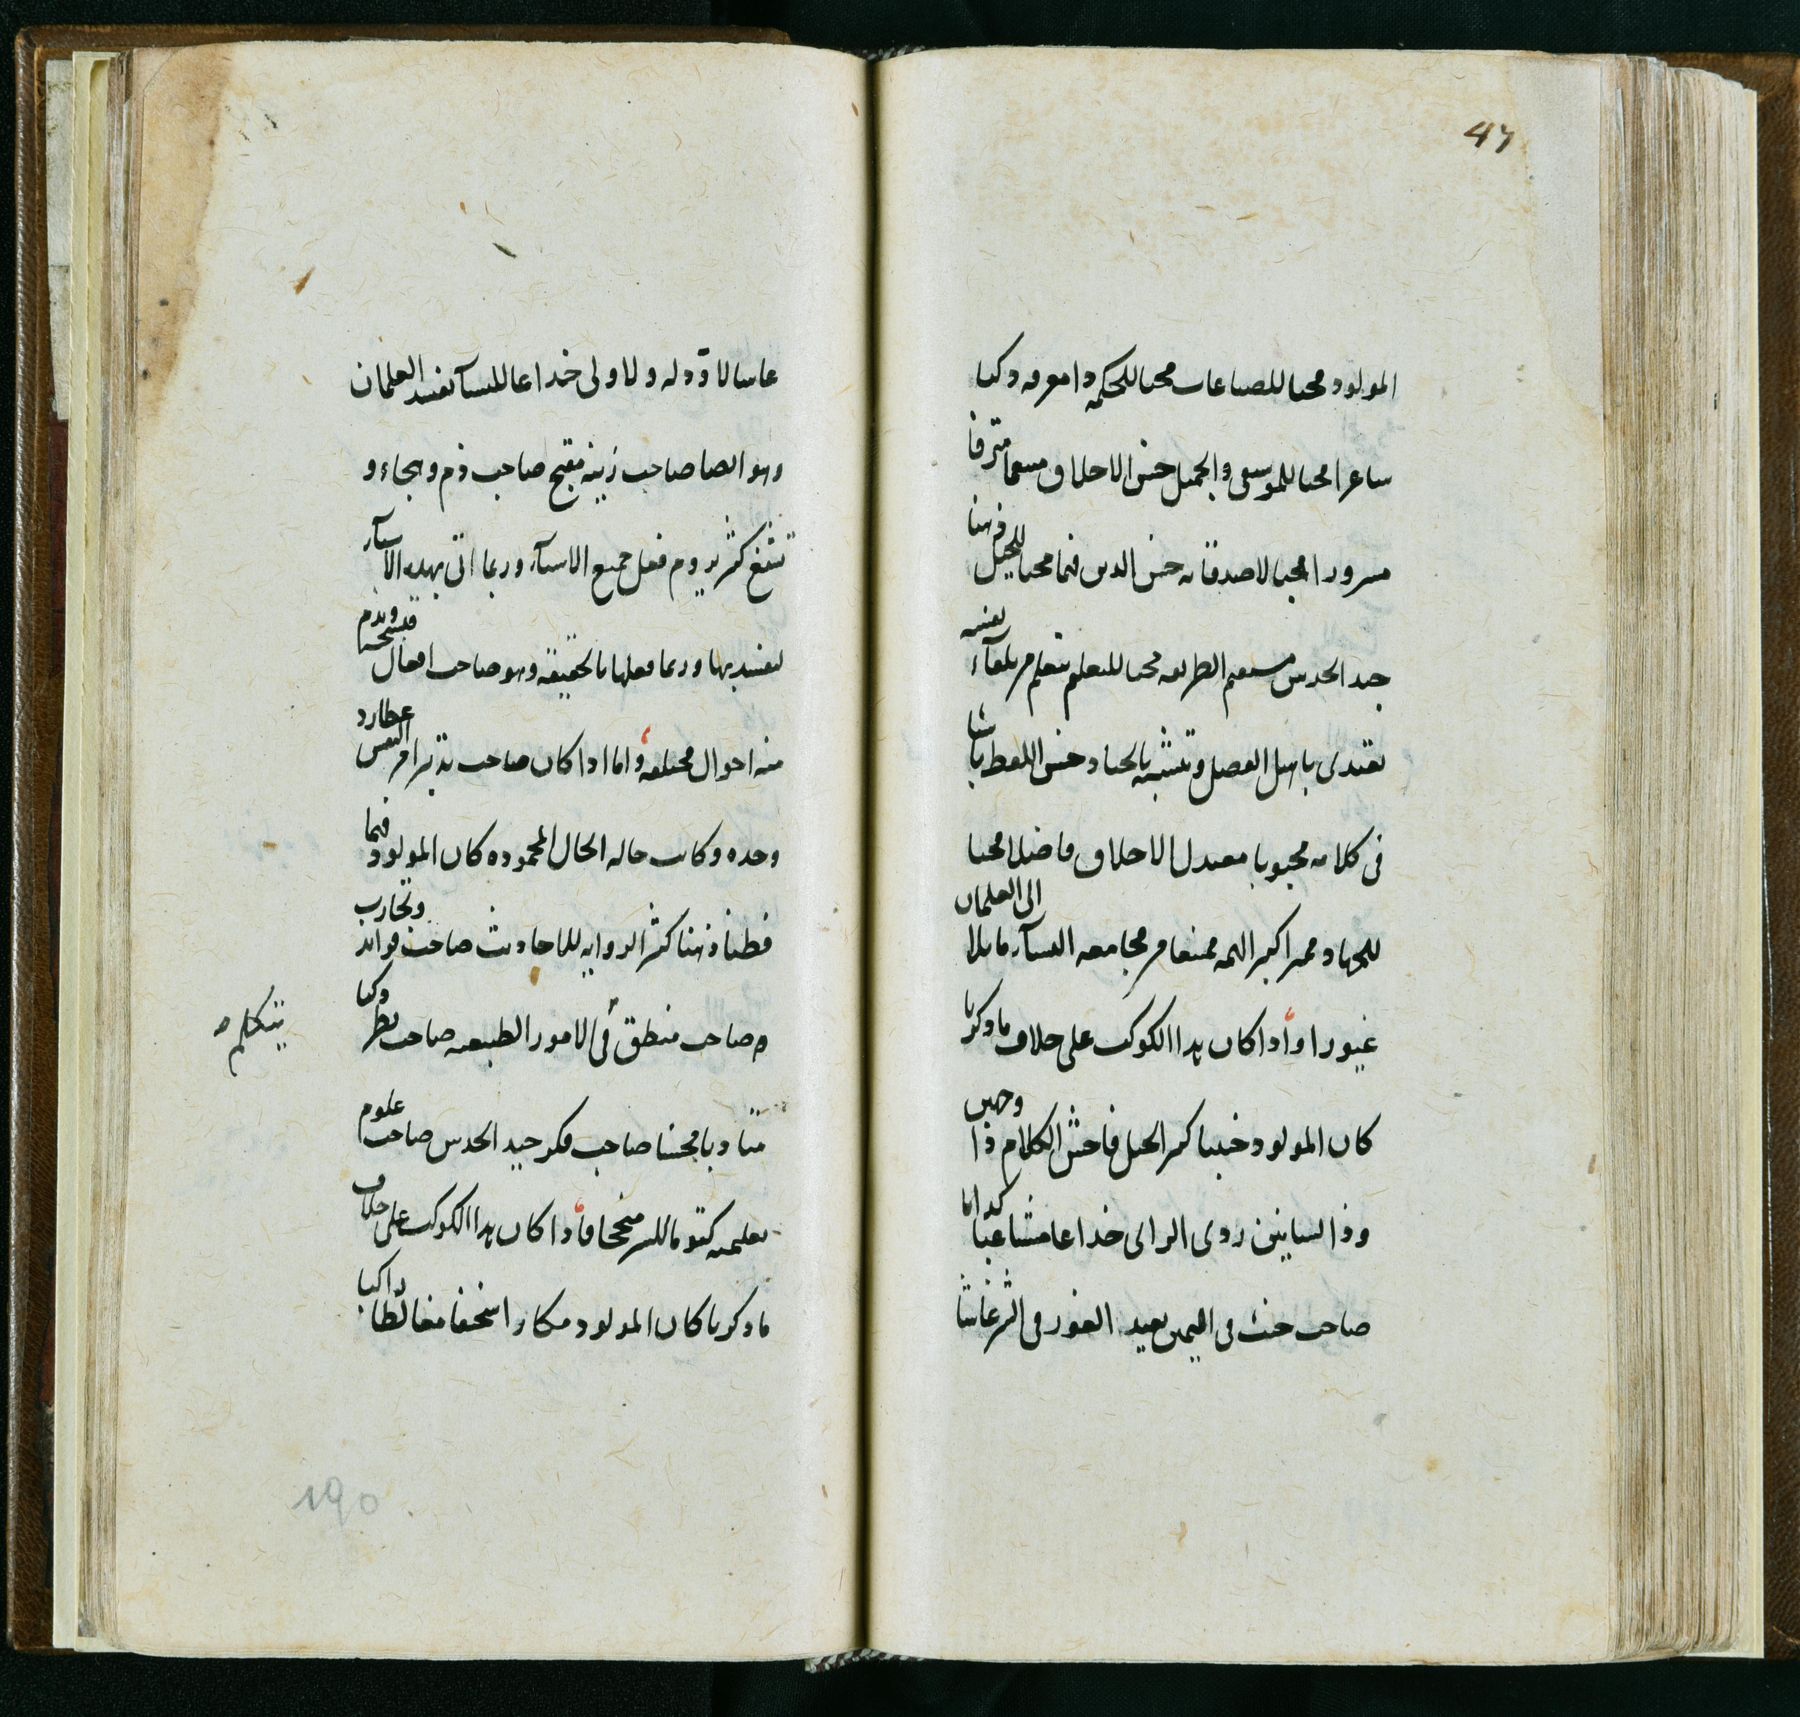 47
المولود محبا للصناعات محبا للحكمه ذا معرفه ذكيا
شاعرا محبا للموسيقى والجميل حسن الاخلاق متنعما مترفا
مسرورا محبا لاصدقائه حسن الدين فهما محبا للجيل ذهنا
جيد الحدس مستقيم الطريقه محبا للتعلم يتعلم من تلقآء نفسه
يقتدى باهل الفضل ويتشبه بالحيا وحسن اللفظ باشا
فى كلامه محبوبا معتدل الاخلاق فاضلا محبا
للجهاد كبير الهمه ممتنعا من مجامعه النسآء مايلا الى الغلمان
غيورا واذا كان هذا الكوكب على خلاف ما ذكرنا
كان المولود خبيثا كثير الحيل فاحش الكلام ذا وجهين
وذا لسانين ردى الراى خداعا مشاغبا كذابا
صاحب حنث فى اليمين بعيد الغور فى الشر غاشا
خداعا للنسآء يفسد الغلمان
وهو ايضا صاحب زينه مقبح صاحب ذم وهجاء و
كثير يروم فعل جميع الاشيآء وربما اتى بهذه الاشيآء
ليفسد بها وربما فعلها بالحقيقه وهو صاحب افعال قبيحه ويذم
منه احوال مختلفه واما اذا كان صاحب تدبير امر النفس عطارد
وحده وكانت حاله الحال المحموده كان المولود فهما
فطنا ذهنا كثير الروايه للاحاديث صاحب فوايد وتجارب
صاحب منطق فى الامور الطبيعه صاحب نظر ذكيا
يتكلم
متادبا محسنا صاحب فكر جيد الحدس صاحب علوم
تعليميه كتوما للسر منجحا فاذا كان هذا الكوكب على خلاف
ما ذكرنا كان المولود مكارا سخيفا مغالطا
190